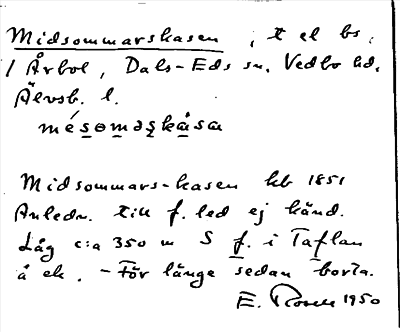 Midsommarskasen , t el bs.
/ Årbol, Dals-Eds sn. Vedbo hd.
Älvsb. l.
mésomaşkåsa
Midsommars-kasen kb 1851
Anledn. till f. led ej känd.
Låg c:a 350 m S f. i Taflan
å ek. - För länge sedan borta.
E. Rosell 1950